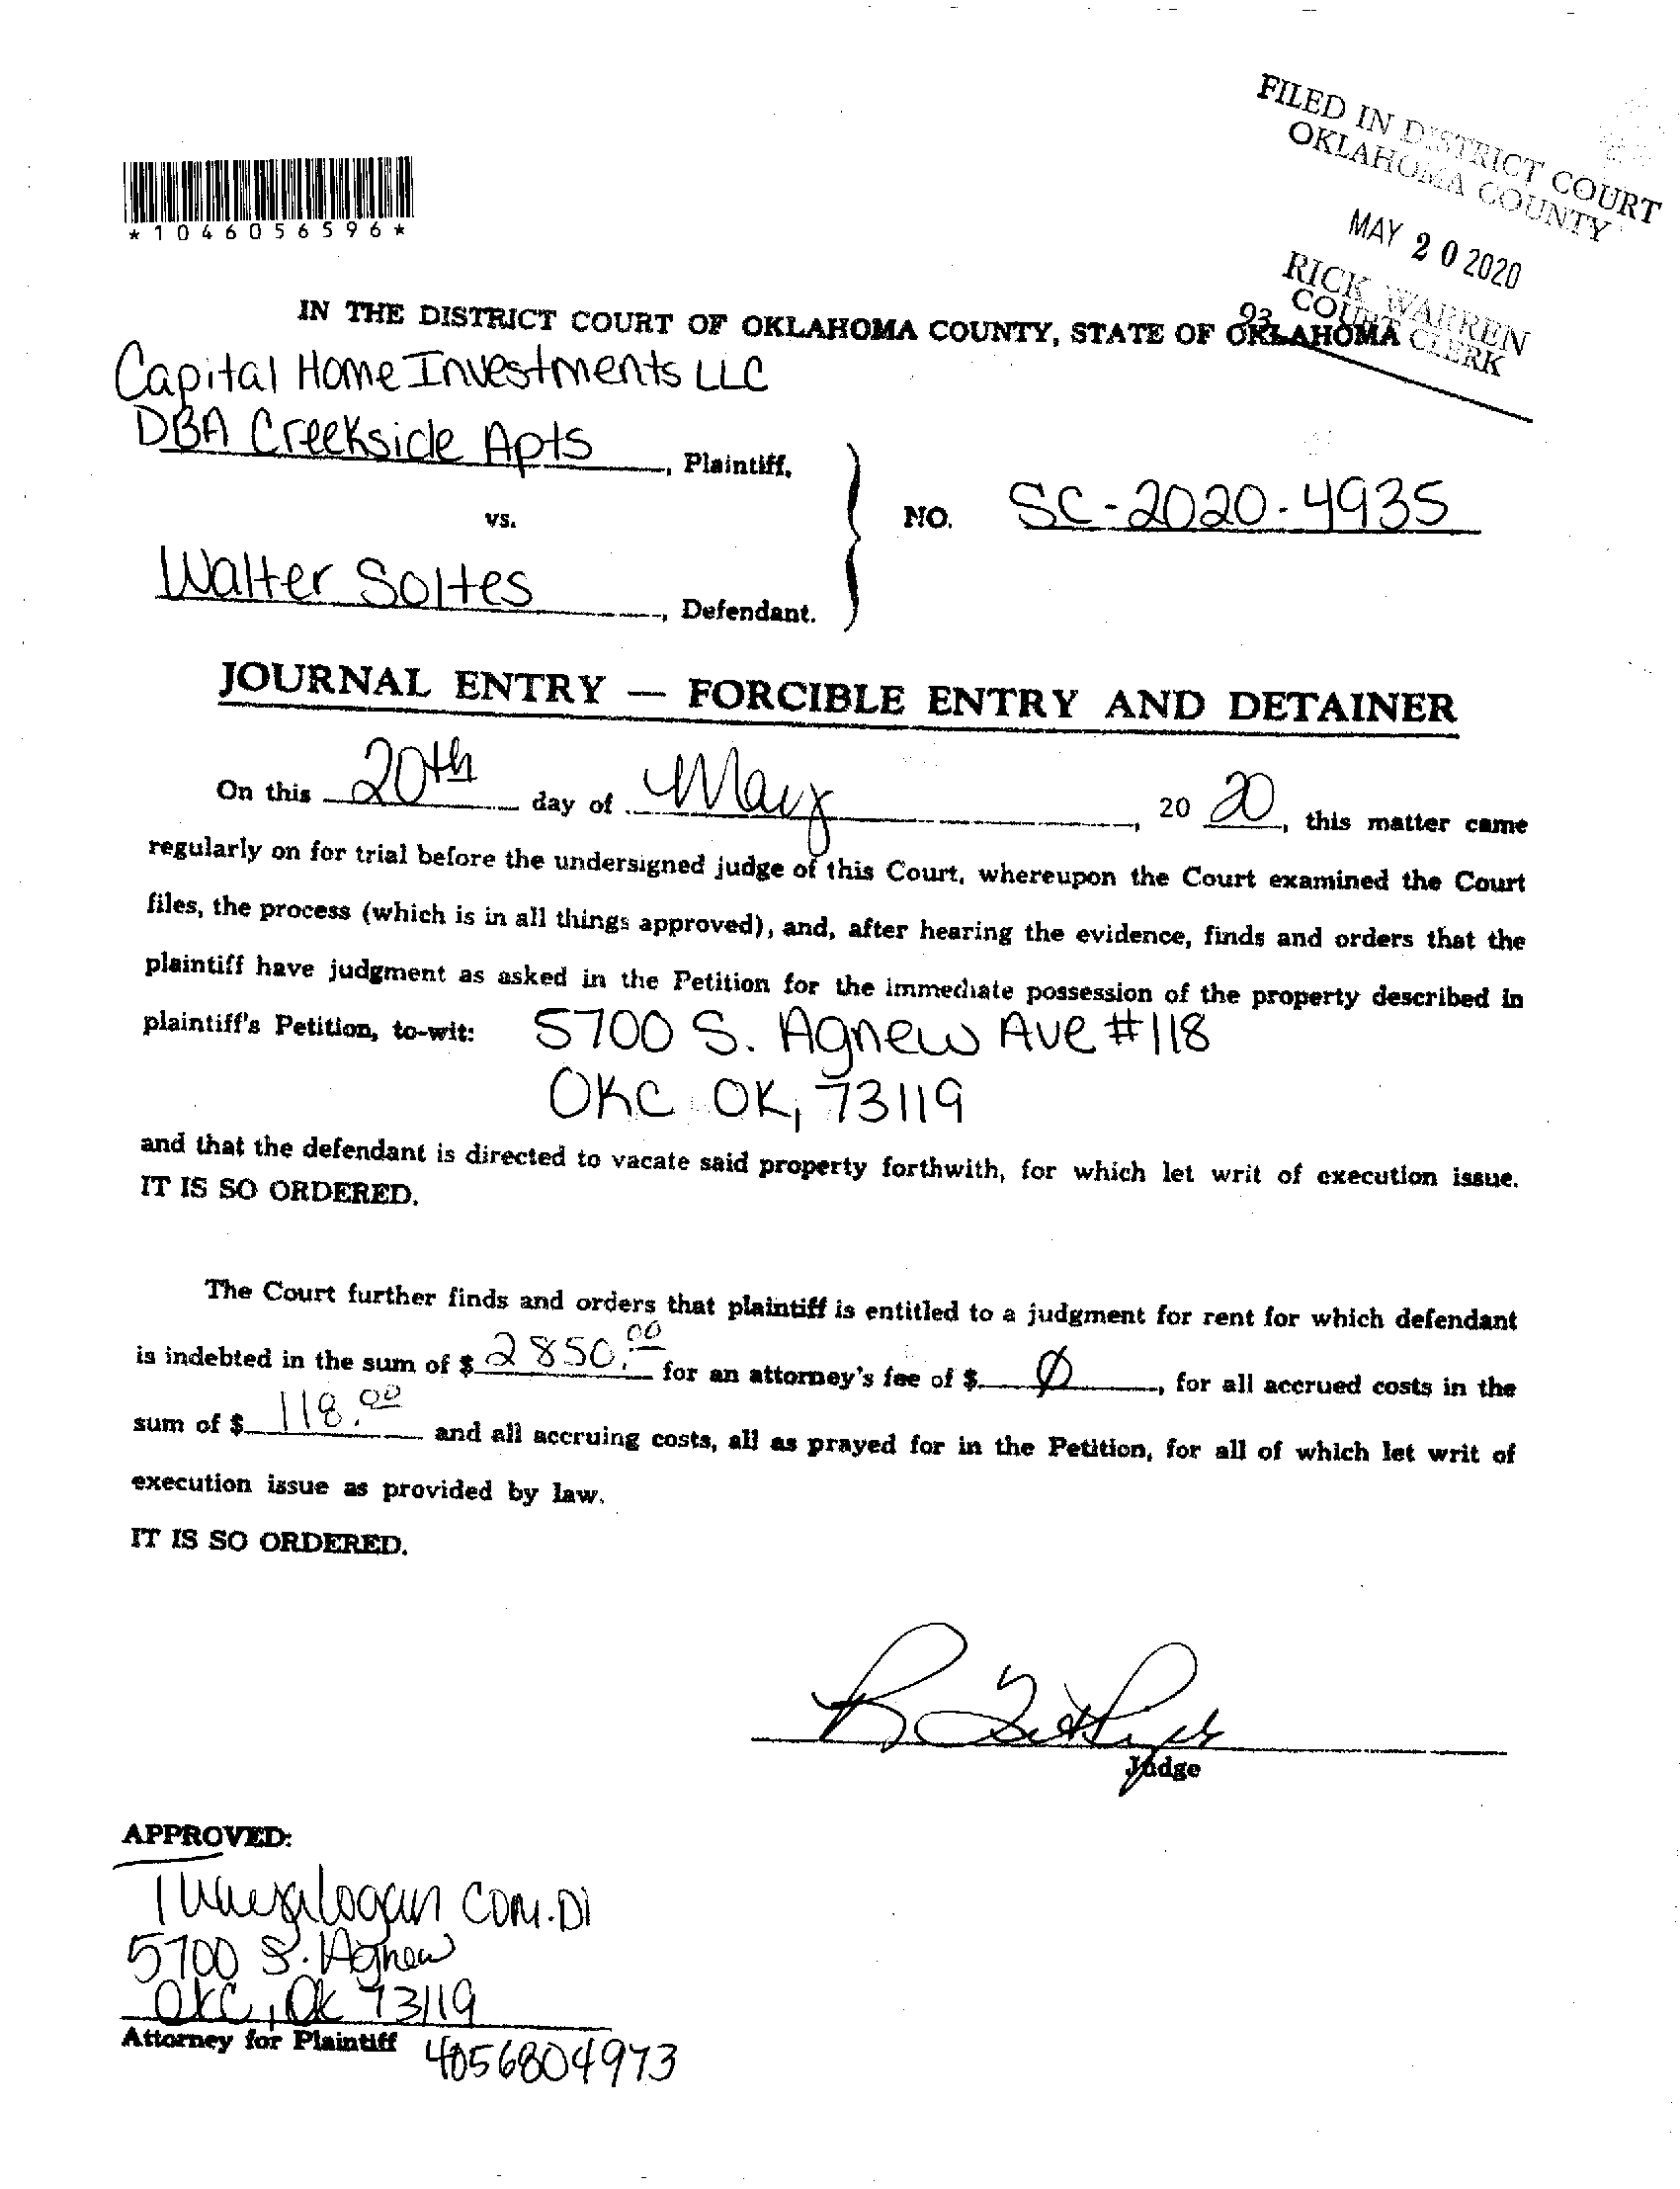 FILED IN DISTRICT COURT
OKLAHOMA COUNTY
MAY 20 2020
RICK WARREN
COURT CLERK
93
*1046056596*
IN THE DISTRICT COURT OF OKLAHOMA COUNTY, STATE OF OKLAHOMA
Capital Home Investments LLC
DBA Creekside Apts, Plaintiff,
vs.
NO. SC-2020-4935
Walter Soltes, Defendant.
JOURNAL ENTRY — FORCIBLE ENTRY AND DETAINER
On this 20th day of May, 20 20, this matter came
regularly on for trial before the undersigned judge of this Court, whereupon the Court examined the Court
files, the process (which is in all things approved), and, after hearing the evidence, finds and orders that the
plaintiff have judgment as asked in the Petition for the immediate possession of the property described in
plaintiff's Petition, to-wit: 5700 S. Agnew Ave #118
OKC OK, 73119
and that the defendant is directed to vacate said property forthwith, for which let writ of execution issue.
IT IS SO ORDERED.
The Court further finds and orders that plaintiff is entitled to a judgment for rent for which defendant
is indebted in the sum of $ 2850.00 for an attorney's fee of $ Ø, for all accrued costs in the
sum of $ 118.00 and all accruing costs, all as prayed for in the Petition, for all of which let writ of
execution issue as provided by law.
IT IS SO ORDERED.
Judge
APPROVED:
logan COM.Di
5700 S. Agnew
OKC, Ok 73119
Attorney for Plaintiff 4056804973